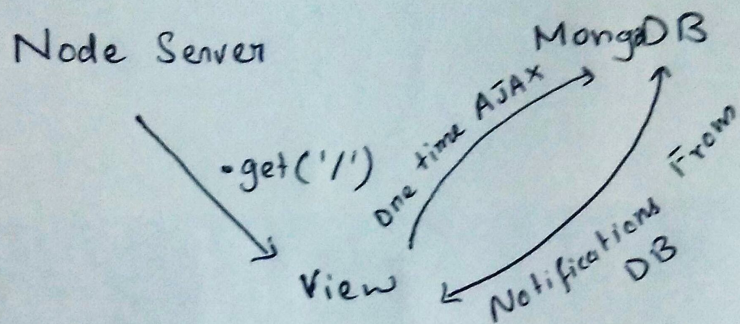 Node Server
MongoDB
.get('/')
One time AJAX
View
Notifications From
DB